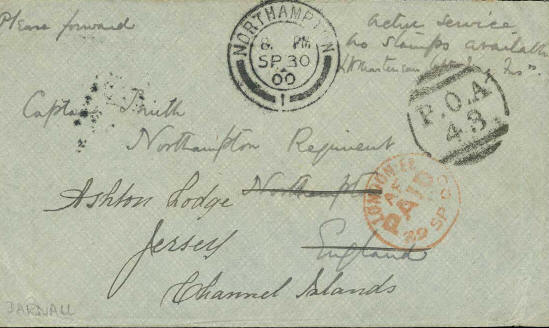 Please forward
Active service
No stamps available
NORTHAMPTON
8 PM
SP 30
00
1
P.O.A
43
Captain Smith
Northampton Regiment
Northampton
Ashton Lodge
Jersey
England
Channel Islands
LONDON
PAID
29 SP 00
DARNALL